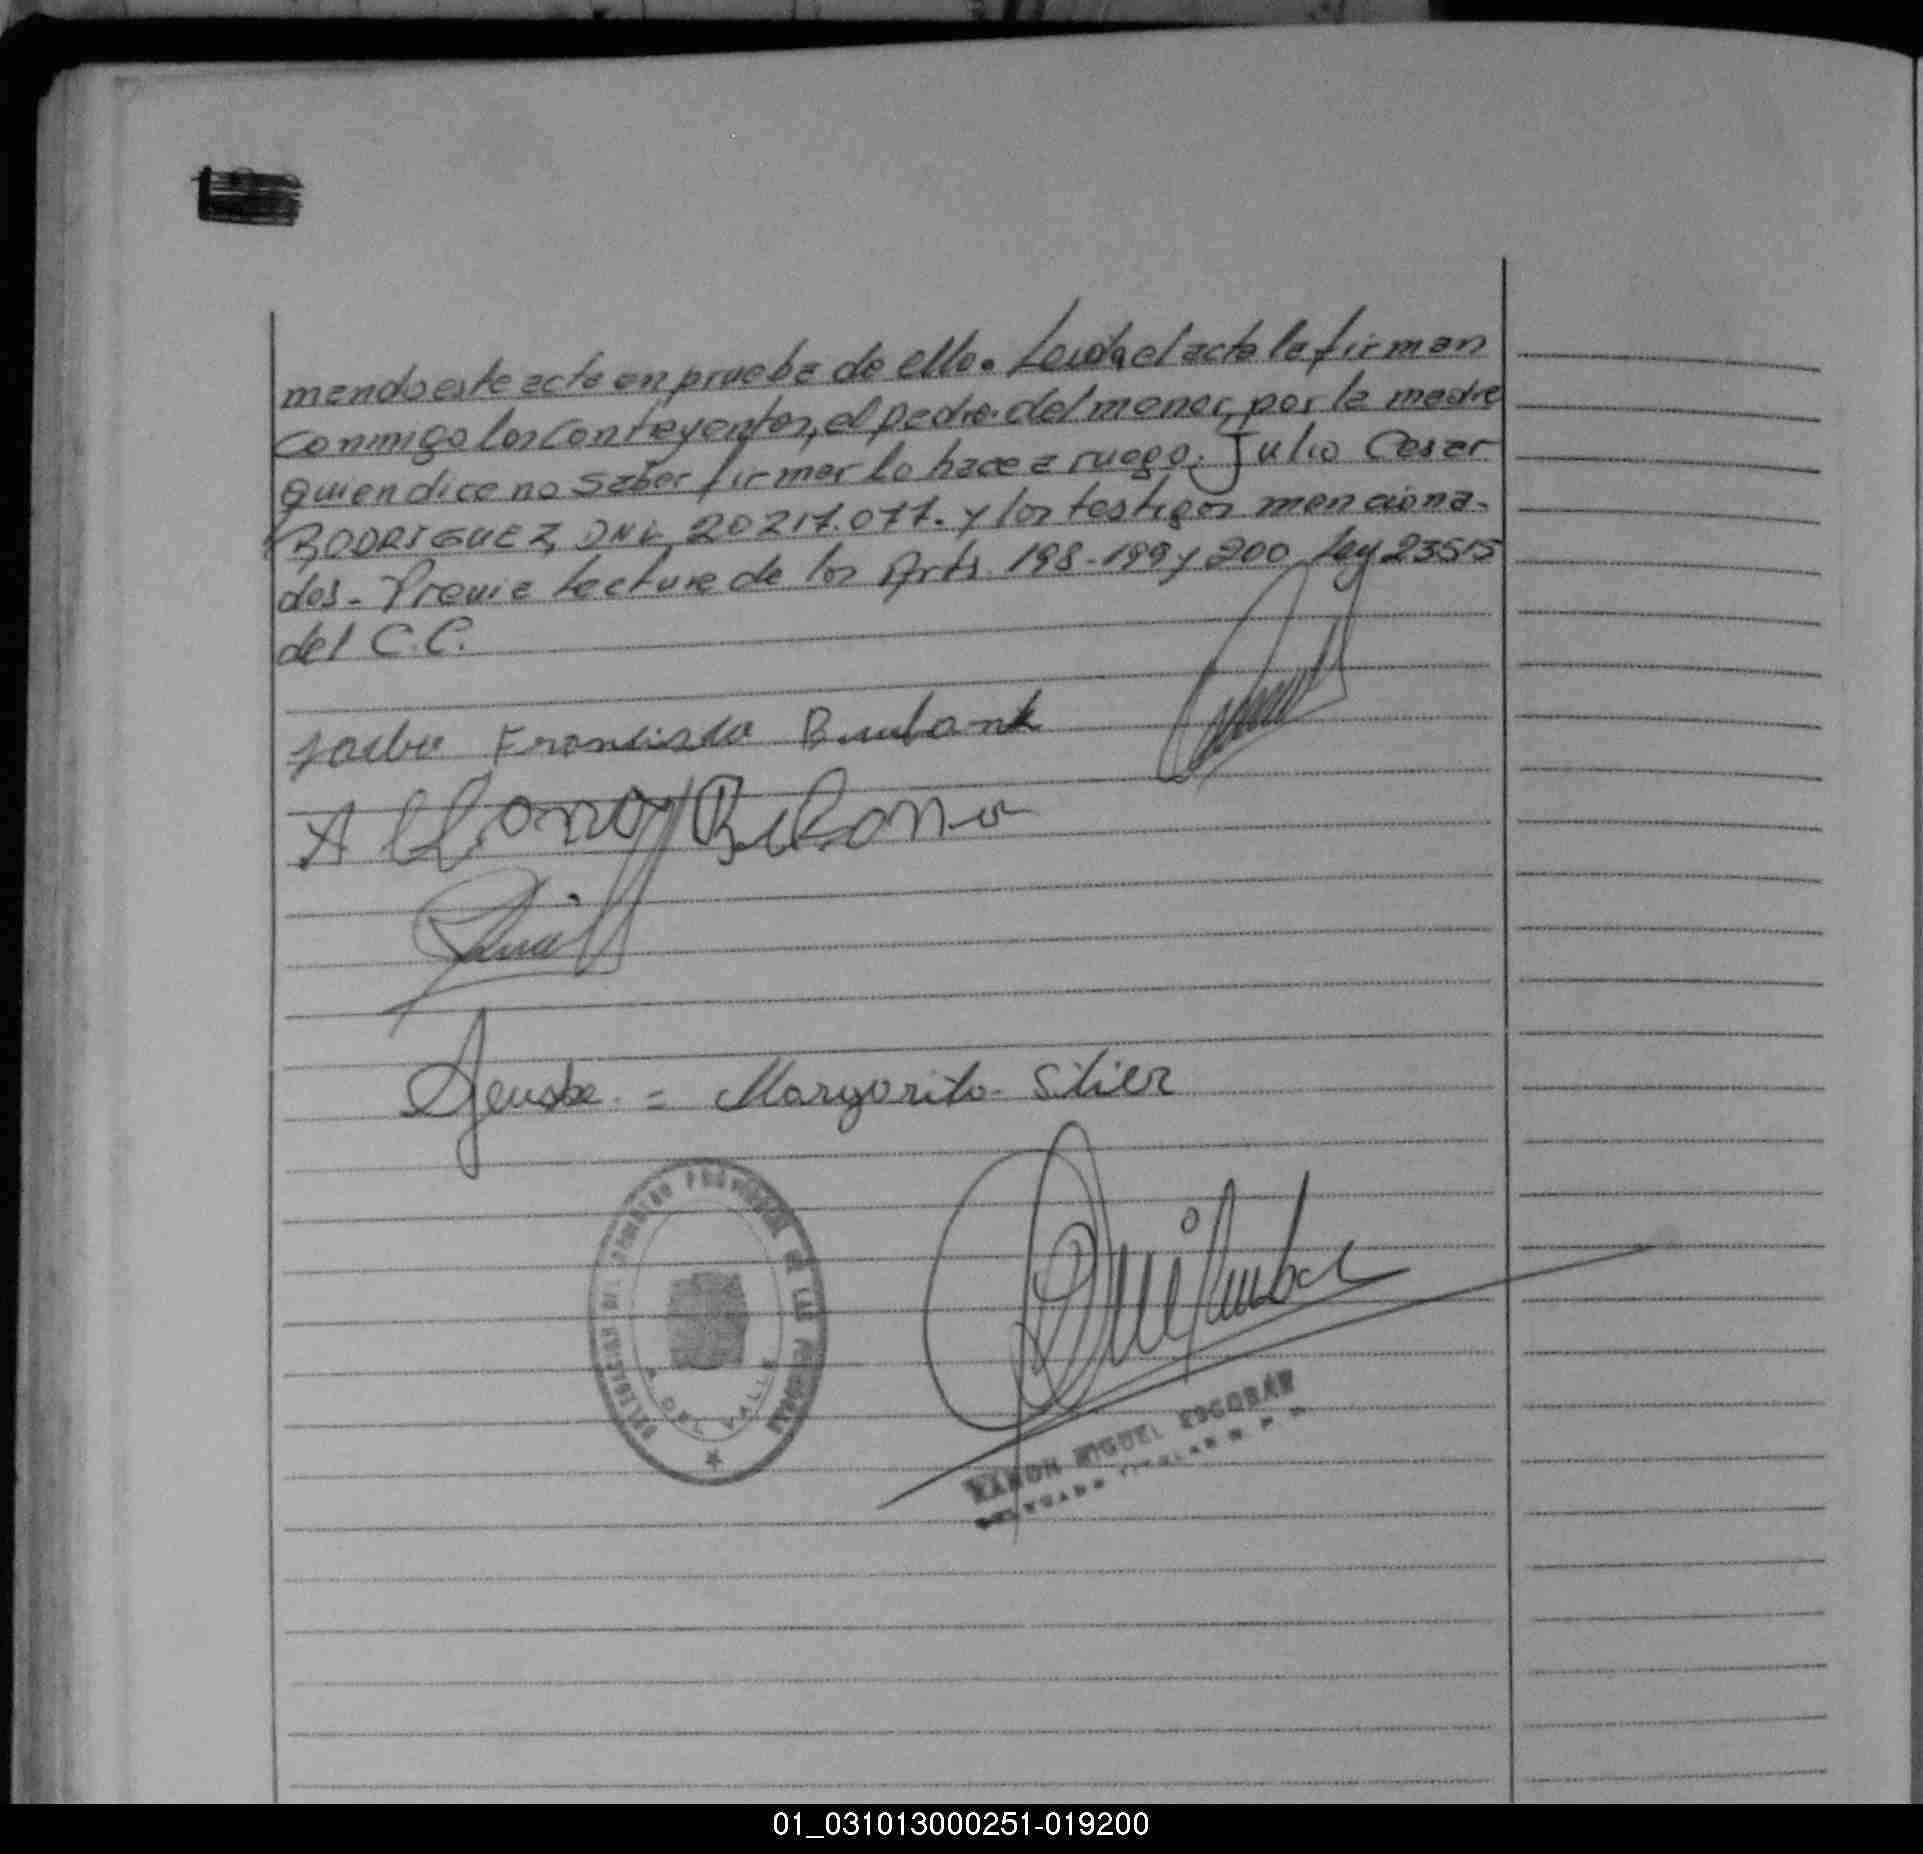 mando este acto en prueba de ello. Leida el acta la firman
conmigo los contrayentes, el padre del menor, por la madre
quien dice no saber firmar lo hace a ruego. Julio Cesar
RODRIGUEZ, DNI. 20217.077. y los testigos menciona-
dos. Previa lectura de los Arts. 198-199 y 200 Ley 23515
del C.C.
Francisco Burbank
Margarita Stier
DELEGACION DEL REGISTRO PROVINCIAL DE LAS PERSONAS
DEL VALLE
RAMON MIGUEL ESCOBAR
01_031013000251-019200